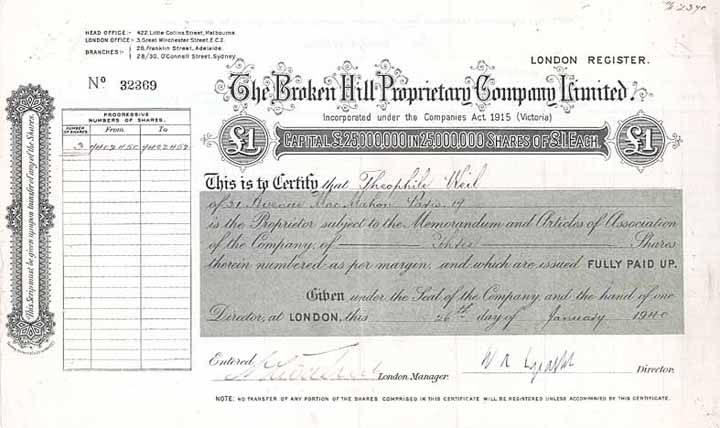 HEAD OFFICE:- 422, Little Collins Street, Melbourne.
LONDON OFFICE:- 3, Great Winchester Street, E.C.2.
BRANCHES:- 28, Franklin Street, Adelaide.
28/30, O'Connell Street, Sydney.
LONDON REGISTER.
No 32369
The Broken Hill Proprietary Company Limited.
Incorporated under the Companies Act 1915 (Victoria)
£1 CAPITAL £25,000,000 IN 25,000,000 SHARES OF £1 EACH. £1
This Scrip must be given up upon transfer of any of the Shares.
PROGRESSIVE
NUMBERS OF SHARES.
NUMBER OF SHARES. From To
3
This is to Certify that Theophile Weil
of 31 Avenue Mac Mahon Paris 17
is the Proprietor subject to the Memorandum and Articles of Association
of the Company, of Three Shares
therein numbered as per margin, and which are issued FULLY PAID UP.
Given under the Seal of the Company, and the hand of one
Director, at LONDON, this 26th day of January 1940
Entered
London Manager. Director.
NOTE: NO TRANSFER OF ANY PORTION OF THE SHARES COMPRISED IN THIS CERTIFICATE WILL BE REGISTERED UNLESS ACCOMPANIED BY THIS CERTIFICATE.